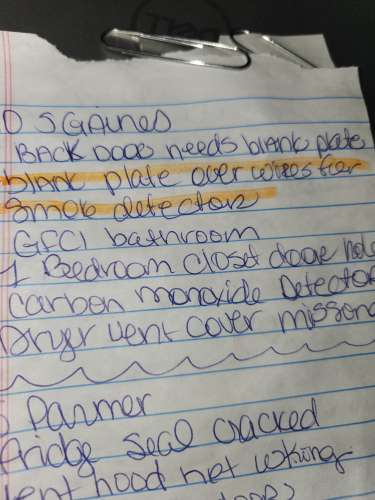 0 S GAINES
BACK DOOR needs blank plate
blank plate over wires for
Smok detector
GFCI bathroom
1 Bedroom closet door
Carbon monoxide Detector
Dryer vent cover missong
Parmer
Fridge Seal cracked
vent hood not wking